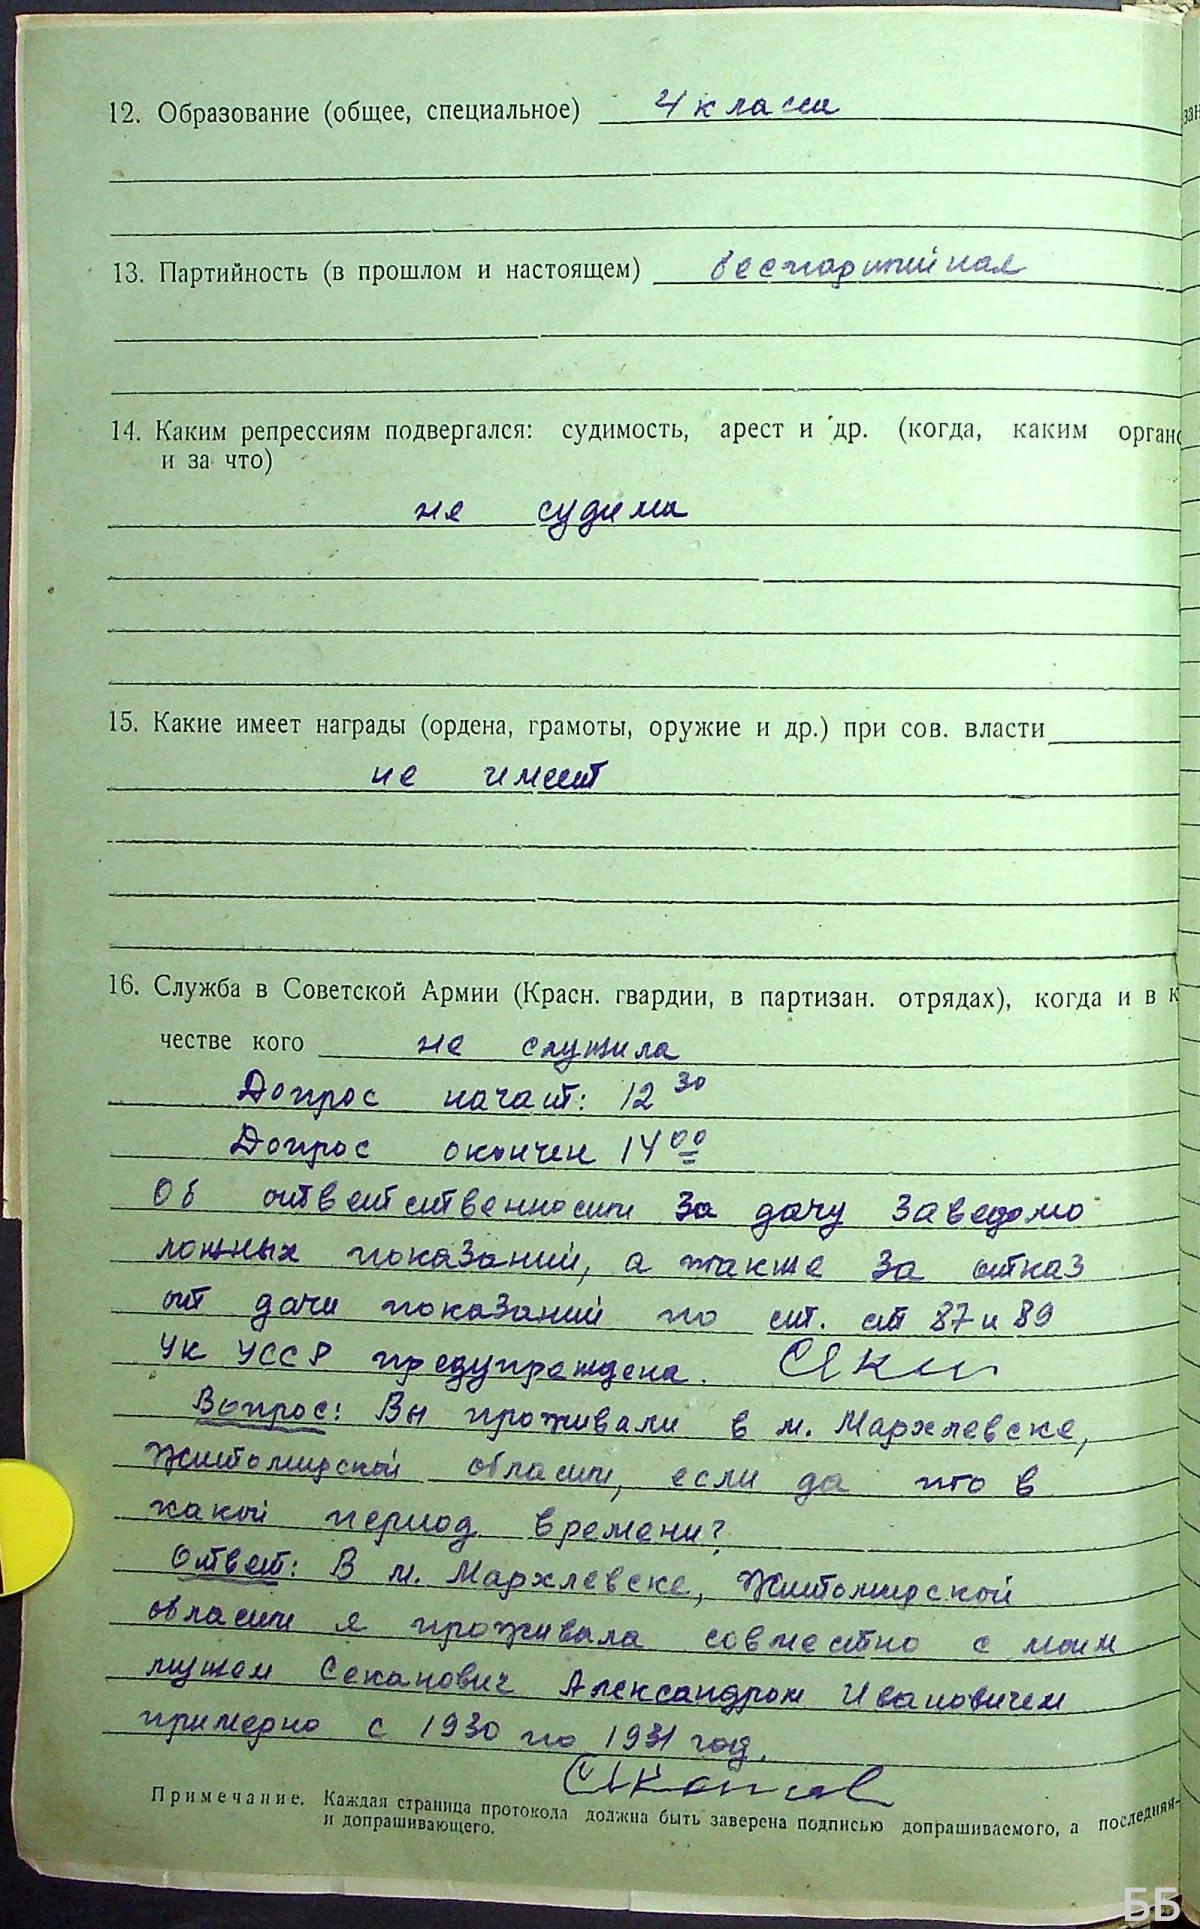 12. Образование (общее, специальное) 4 класса
13. Партийность (в прошлом и настоящем) беспартийная
14. Каким репрессиям подвергался: судимость, арест и др. (когда, каким орган
и за что)
не судима
15. Какие имеет награды (ордена, грамоты, оружие и др.) при сов. власти
не имеет
16. Служба в Советской Армии (Красн. гвардии, в партизан. отрядах), когда и в к
честве кого не служила
Допрос начат: 12 30
Допрос окончен 14 00
Об ответственности за дачу заведомо
ложных показаний, а также за отказ
от дачи показаний по ст. ст 87 и 89
УК УССР предупреждена.
Вопрос: Вы проживали в м. Мархлевске,
Житомирской области, если да то в
какой период времени?
Ответ: В м. Мархлевске, Житомирской
области я проживала совместно с моим
мужем Секанович Александром Ивановичем
примерно с 1930 по 1931 год.
Примечание. Каждая страница протокола должна быть заверена подписью допрашиваемого, а последняя-
и допрашивающего.
ББ